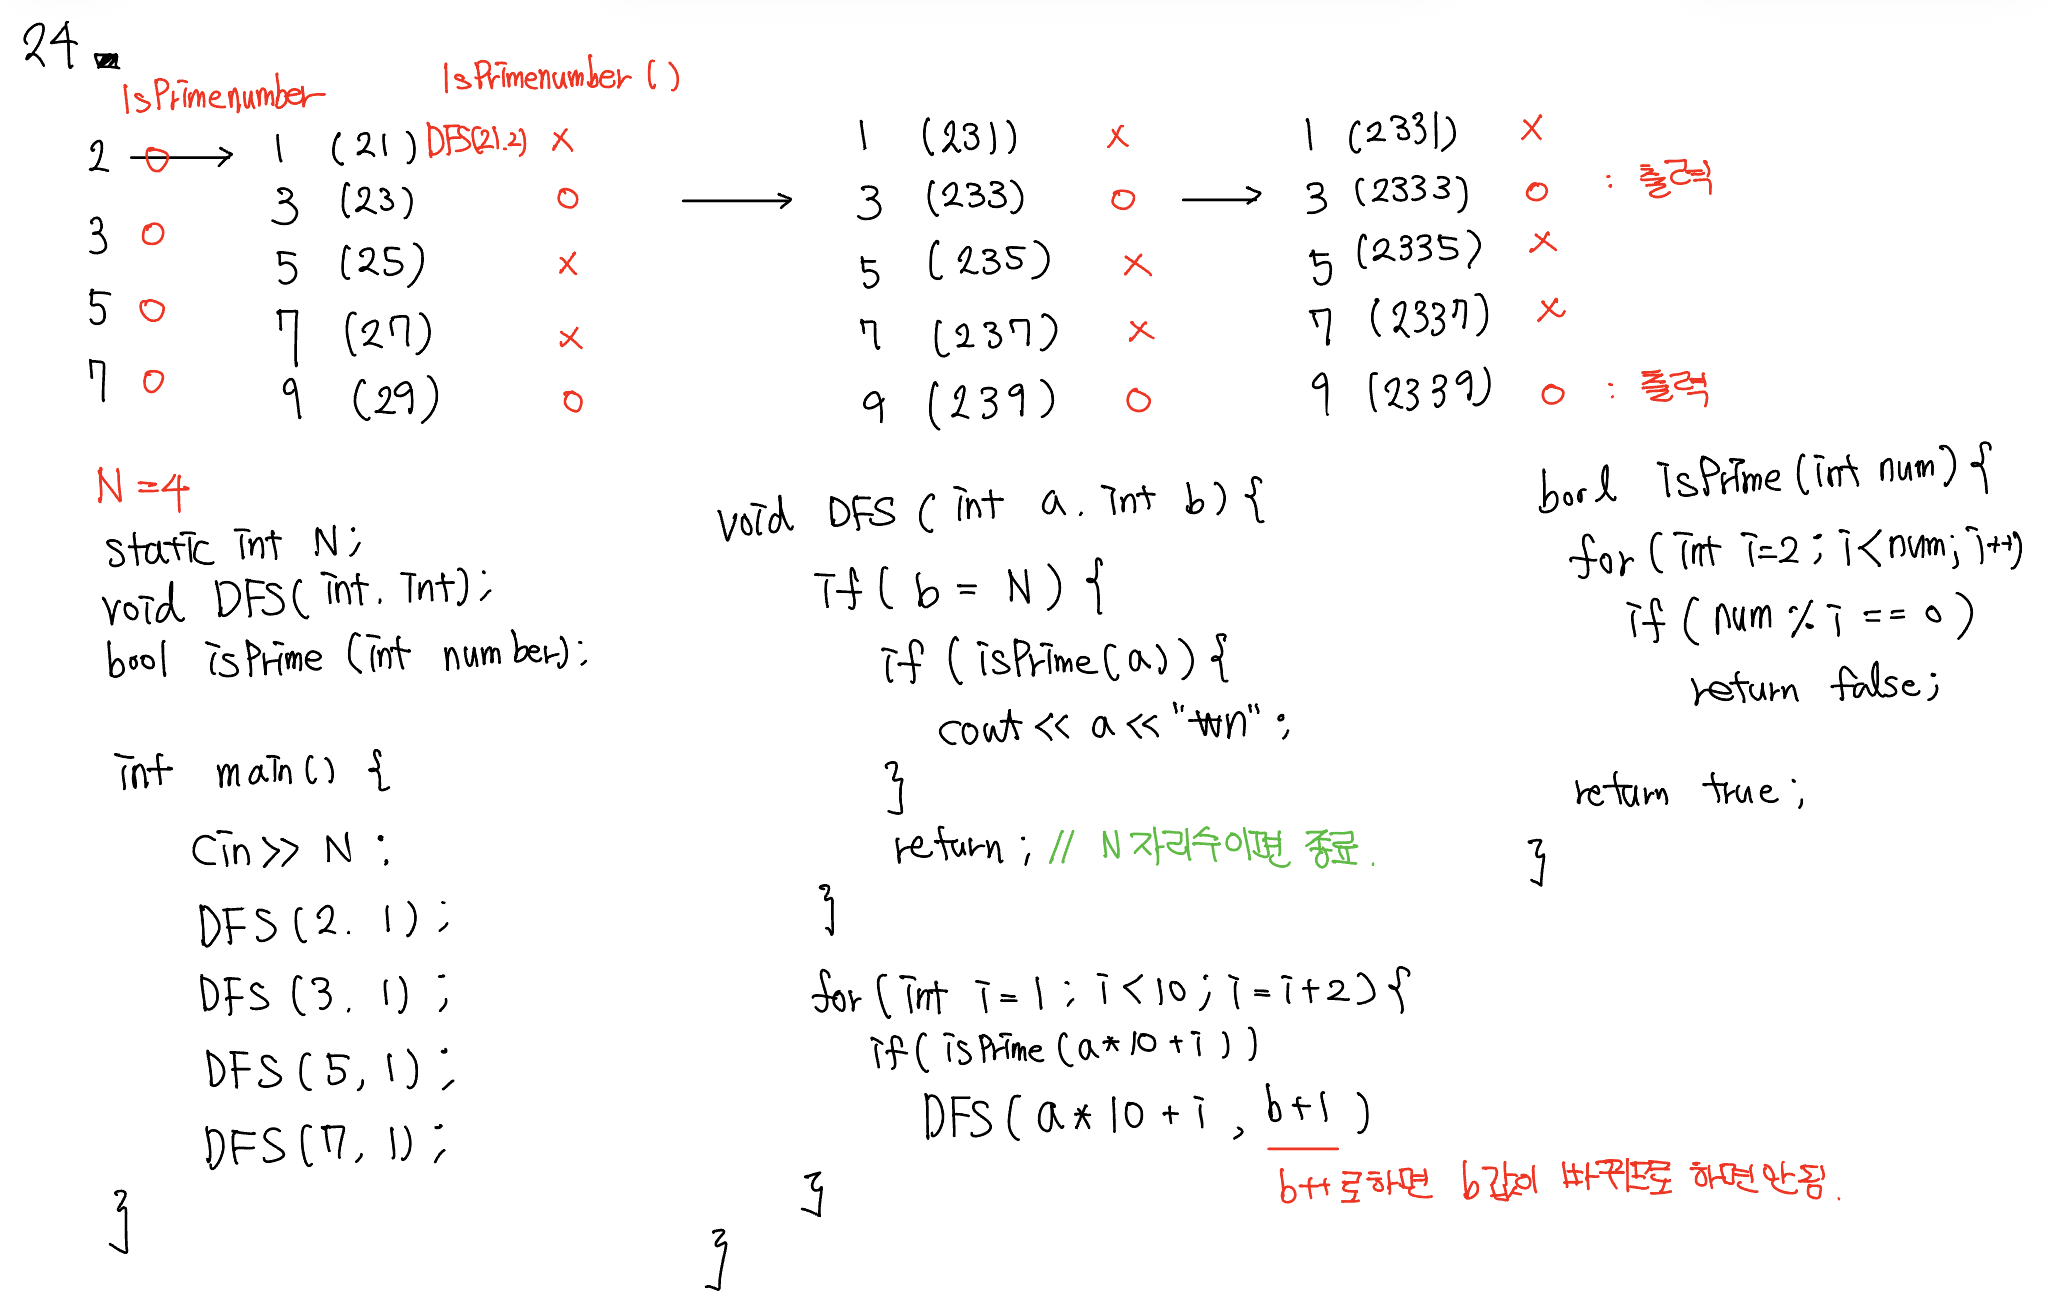 24
IsPrimenumber
IsPrimenumber()
2 O → 1 (21) DFS(21.2) X
3 (23) O → 3 (233) O → 3 (2333) O : 출력
1 (231) X
1 (2331) X
3 O
5 (25) X
5 (235) X
5 (2335) X
5 O
7 (27) X
7 (237) X
7 (2337) X
7 O
9 (29) O
9 (239) O
9 (2339) O : 출력
N=4
static int N;
void DFS(int. int);
bool isPrime (int number);
int main() {
cin >> N ;
DFS(2. 1);
DFS(3. 1);
DFS(5, 1);
DFS(7, 1);
}
void DFS (int a. int b) {
if( b = N ) {
if (isPrime(a)) {
cout << a << "₩n" ;
}
return ; // N자리수이면 종료.
}
for (int i=1 ; i<10 ; i=i+2) {
if( isPrime (a*10+i))
DFS( a*10+i , b+1 )
b++로하면 b값이 바뀌므로 하면안됨.
}
}
bool isPrime (int num) {
for (int i=2 ; i<num; i++)
if (num % i == 0)
return false;
return true;
}